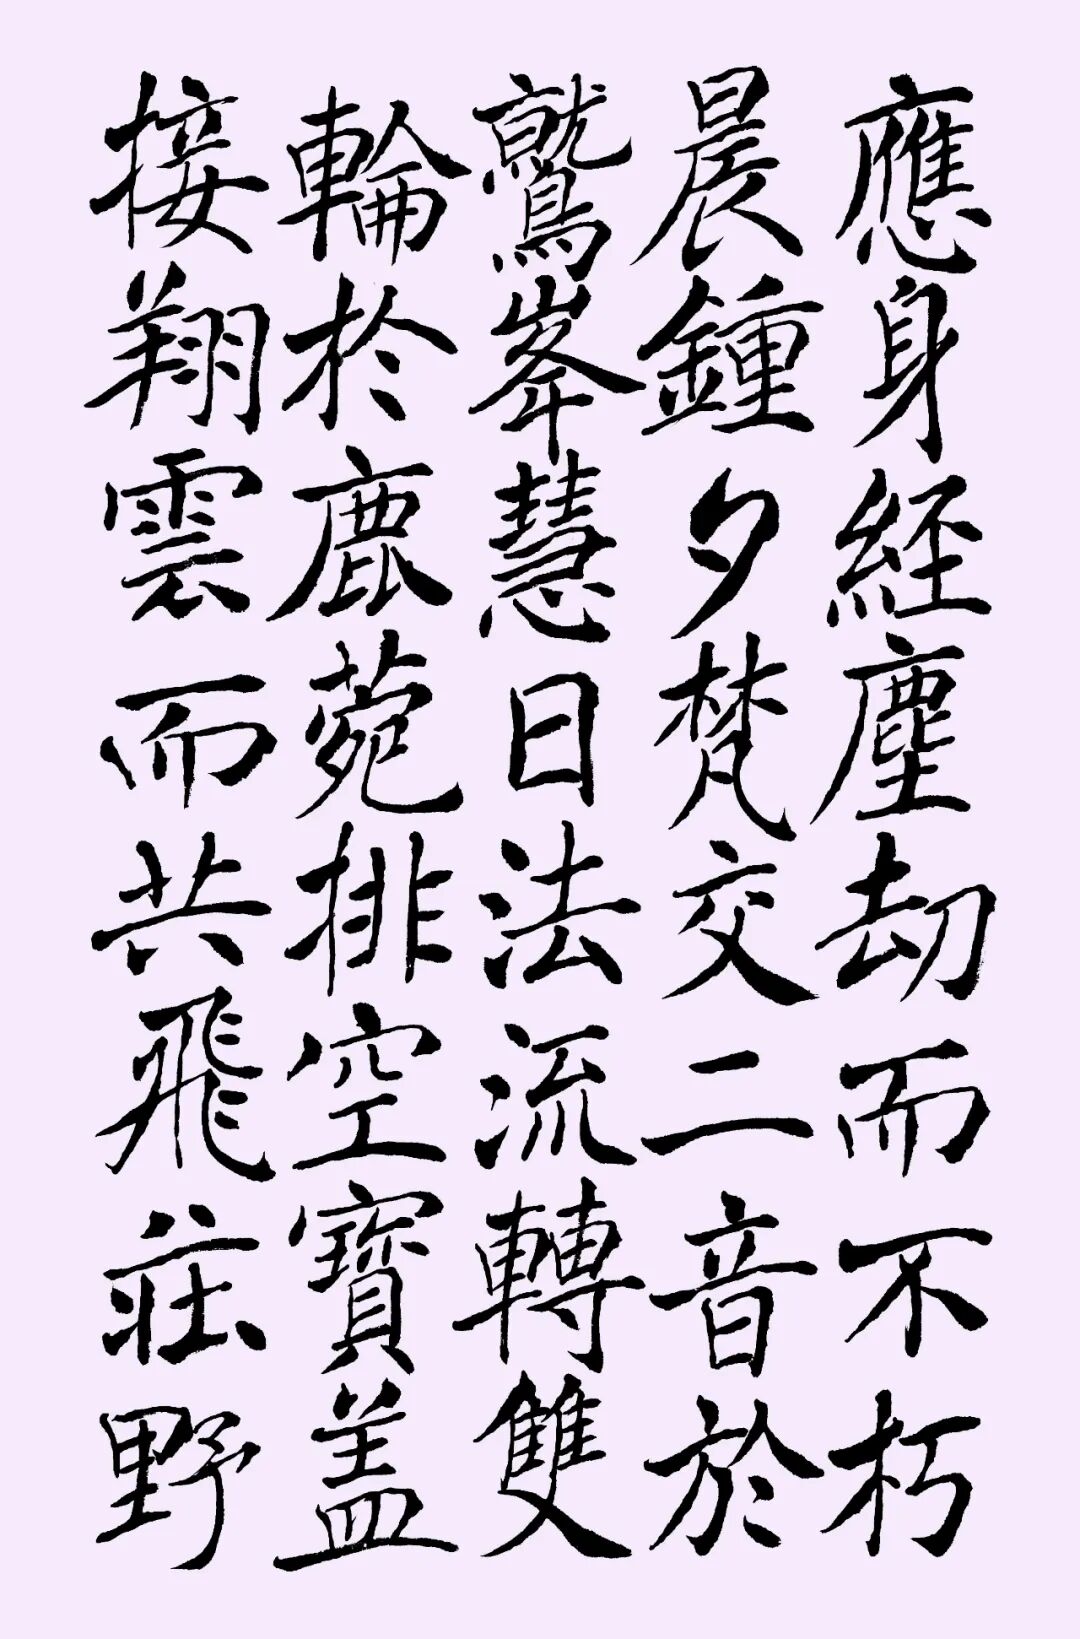 應身經塵劫而不朽
晨鍾夕梵交二音於
鷲峯慧日法流轉雙
輪於鹿菀排空寶盖
接翔雲而共飛莊野